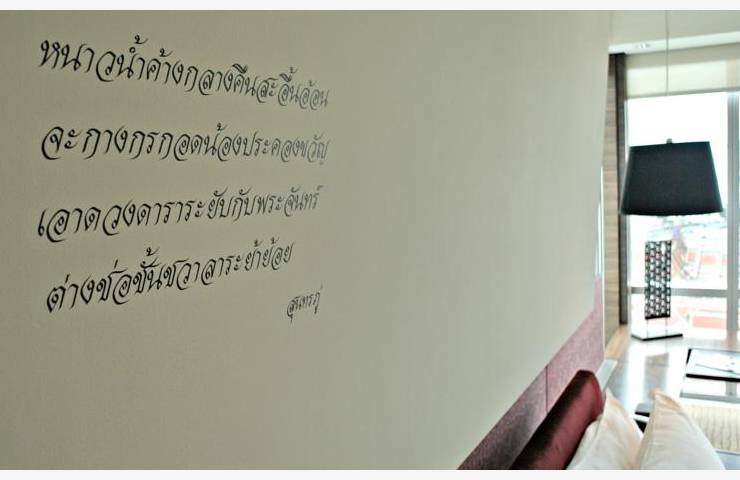 หนาวน้ำค้างกลางคืนสะอื้นอ้อน
จะกางกรกอดน้องประคองขวัญ
เอาดวงดาราระยับกับพระจันทร์
ต่างช่อชั้นชวาลาระย้าย้อย
สุนทรภู่